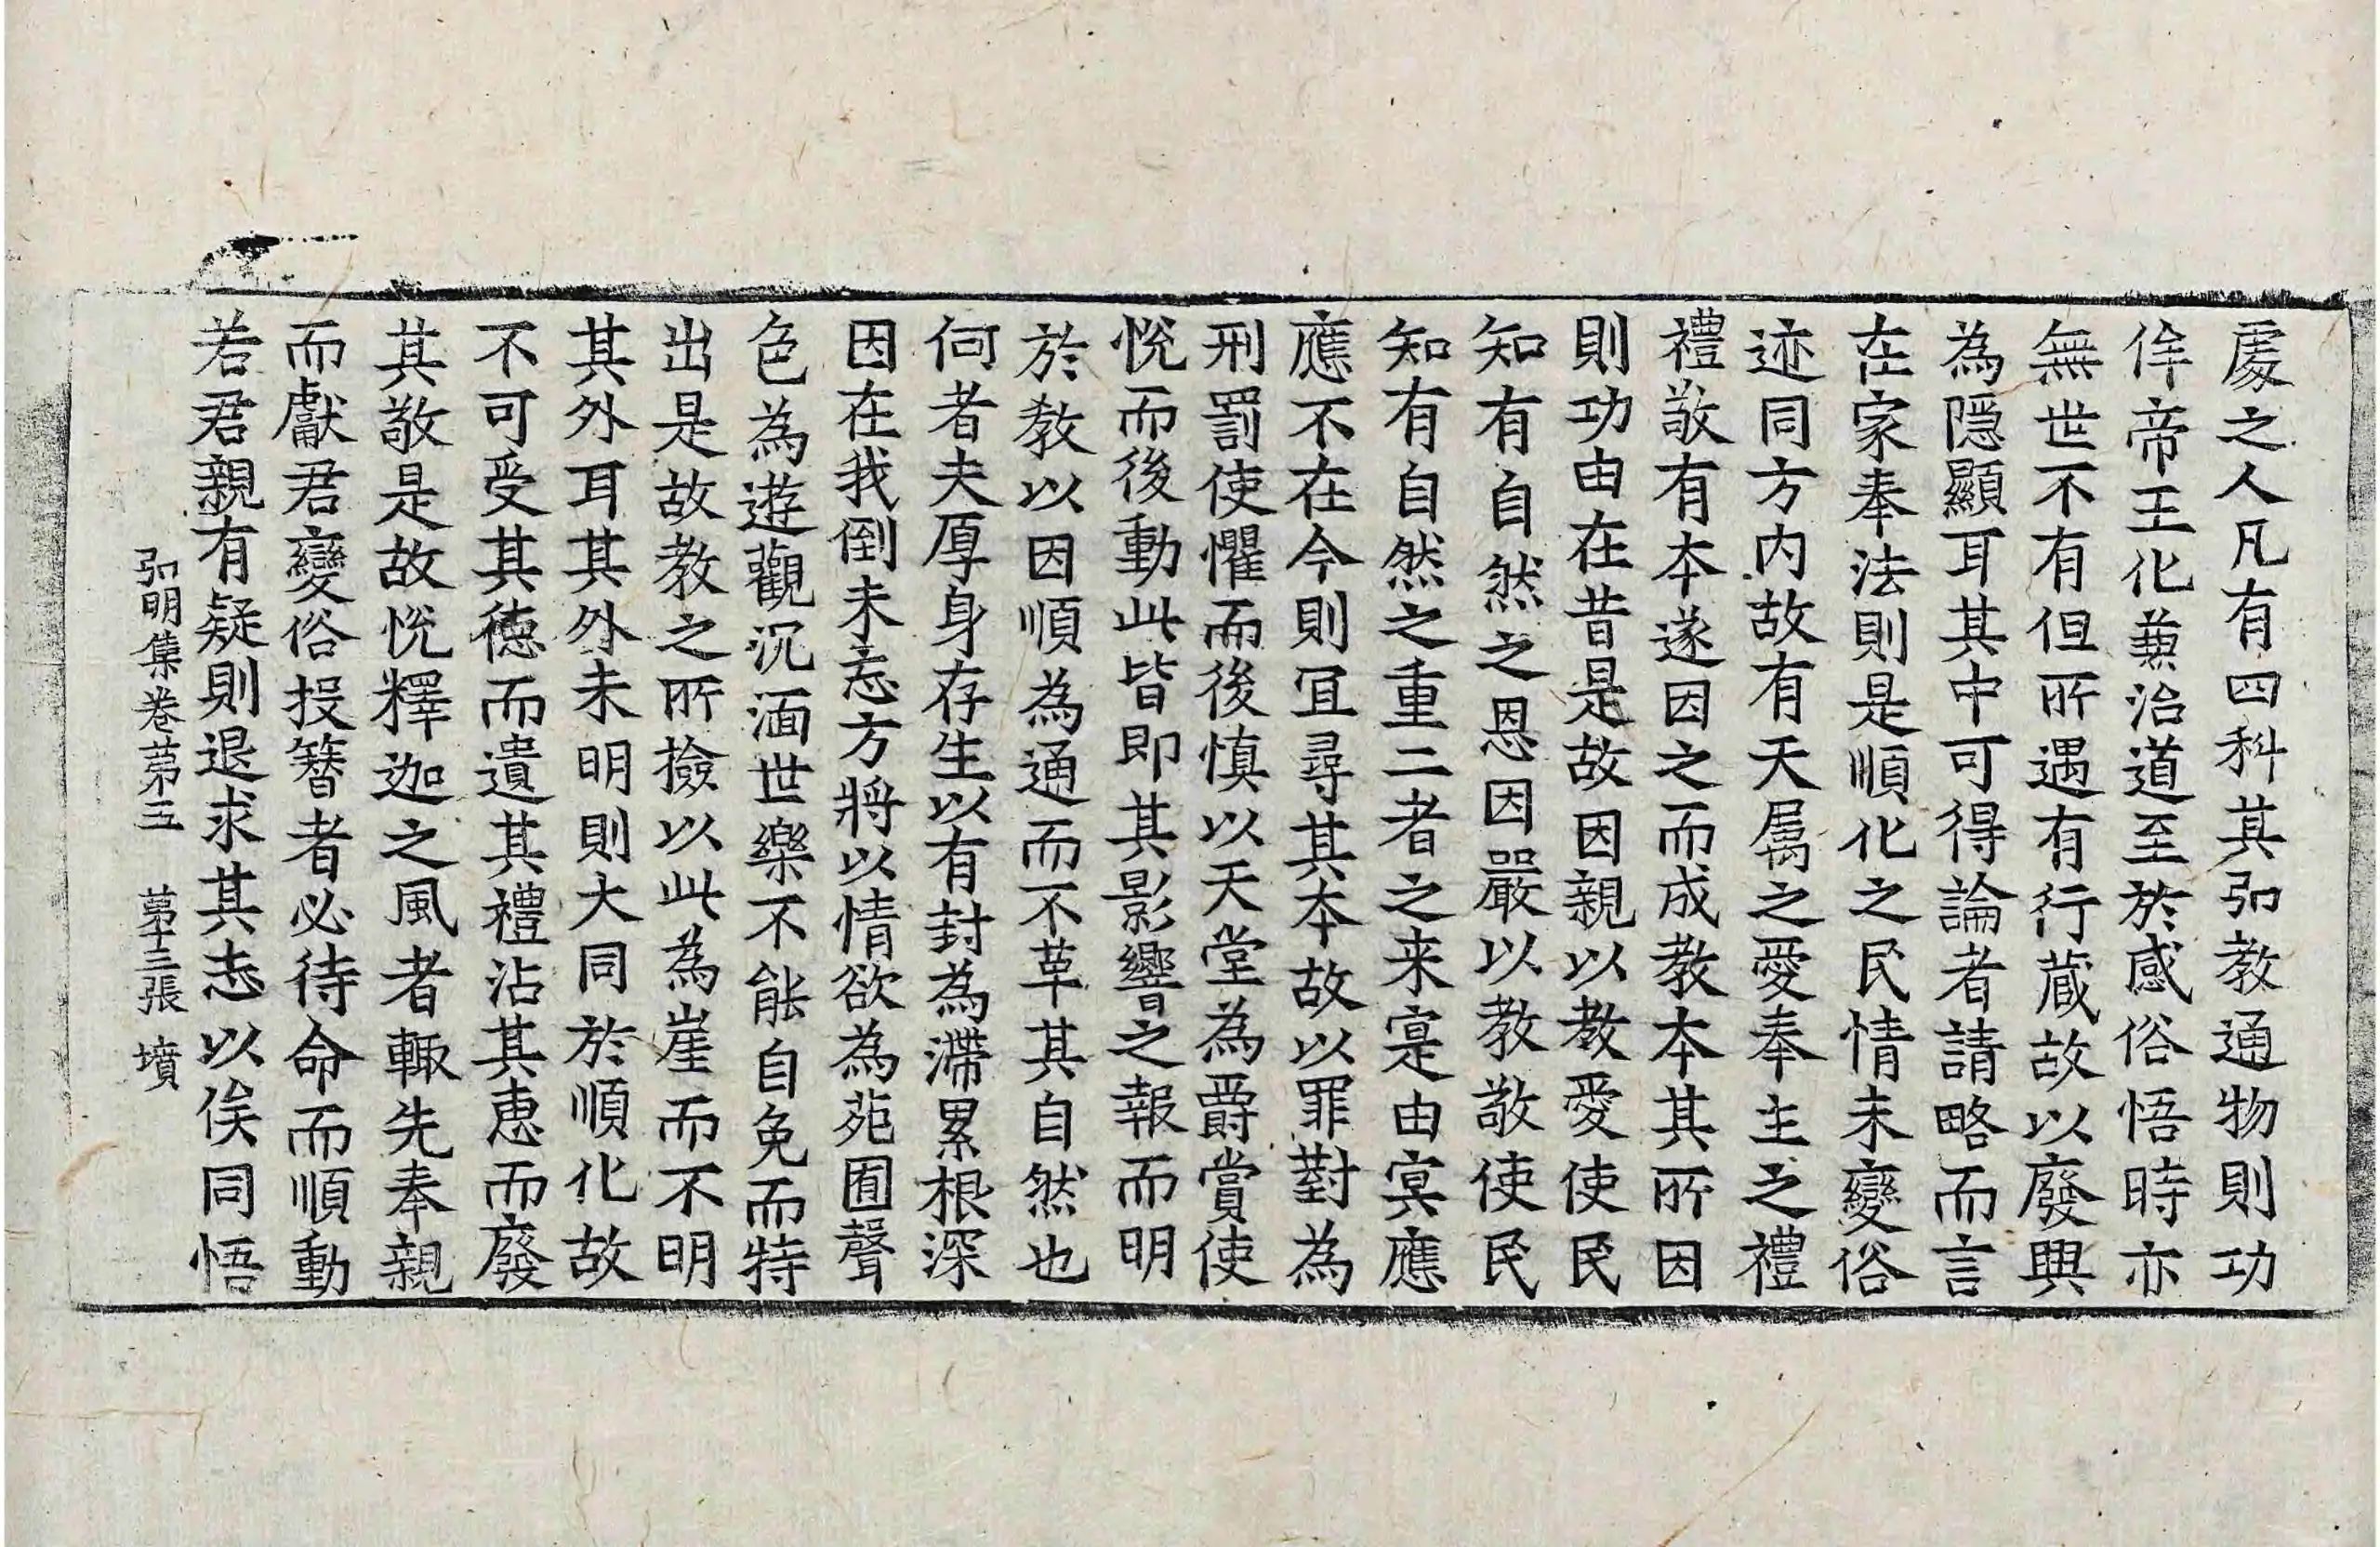 處之人凡有四科其弘教通物則功
侔帝王化兼治道至於感俗悟時亦
無世不有但所遇有行蔵故以廢興
為隱顯耳其中可得論者請略而言
在家奉法則是順化之民情未變俗
迹同方内故有天属之愛奉主之禮
禮敬有本遂因之而成教本其所因
則功由在昔是故因親以教愛使民
知有自然之恩因嚴以教敬使民
知有自然之重二者之来寔由冥應
應不在今則冝尋其本故以罪對為
刑罰使懼而後慎以天堂為爵賞使
悅而後動此皆即其影響之報而明
於教以因順為通而不革其自然也
何者夫厚身存生以有封為滯累根深
因在我倒未忘方將以情欲為苑囿聲
色為遊觀沉湎世樂不能自免而特
出是故教之所撿以此為崖而不明
其外耳其外未明則大同於順化故
不可受其德而遺其禮沾其惠而廢
其敬是故悅釋迦之風者輙先奉親
而獻君變俗投簪者必待命而順動
若君親有疑則退求其志以俟同悟
弘明集卷苐五 苐十三張 墳